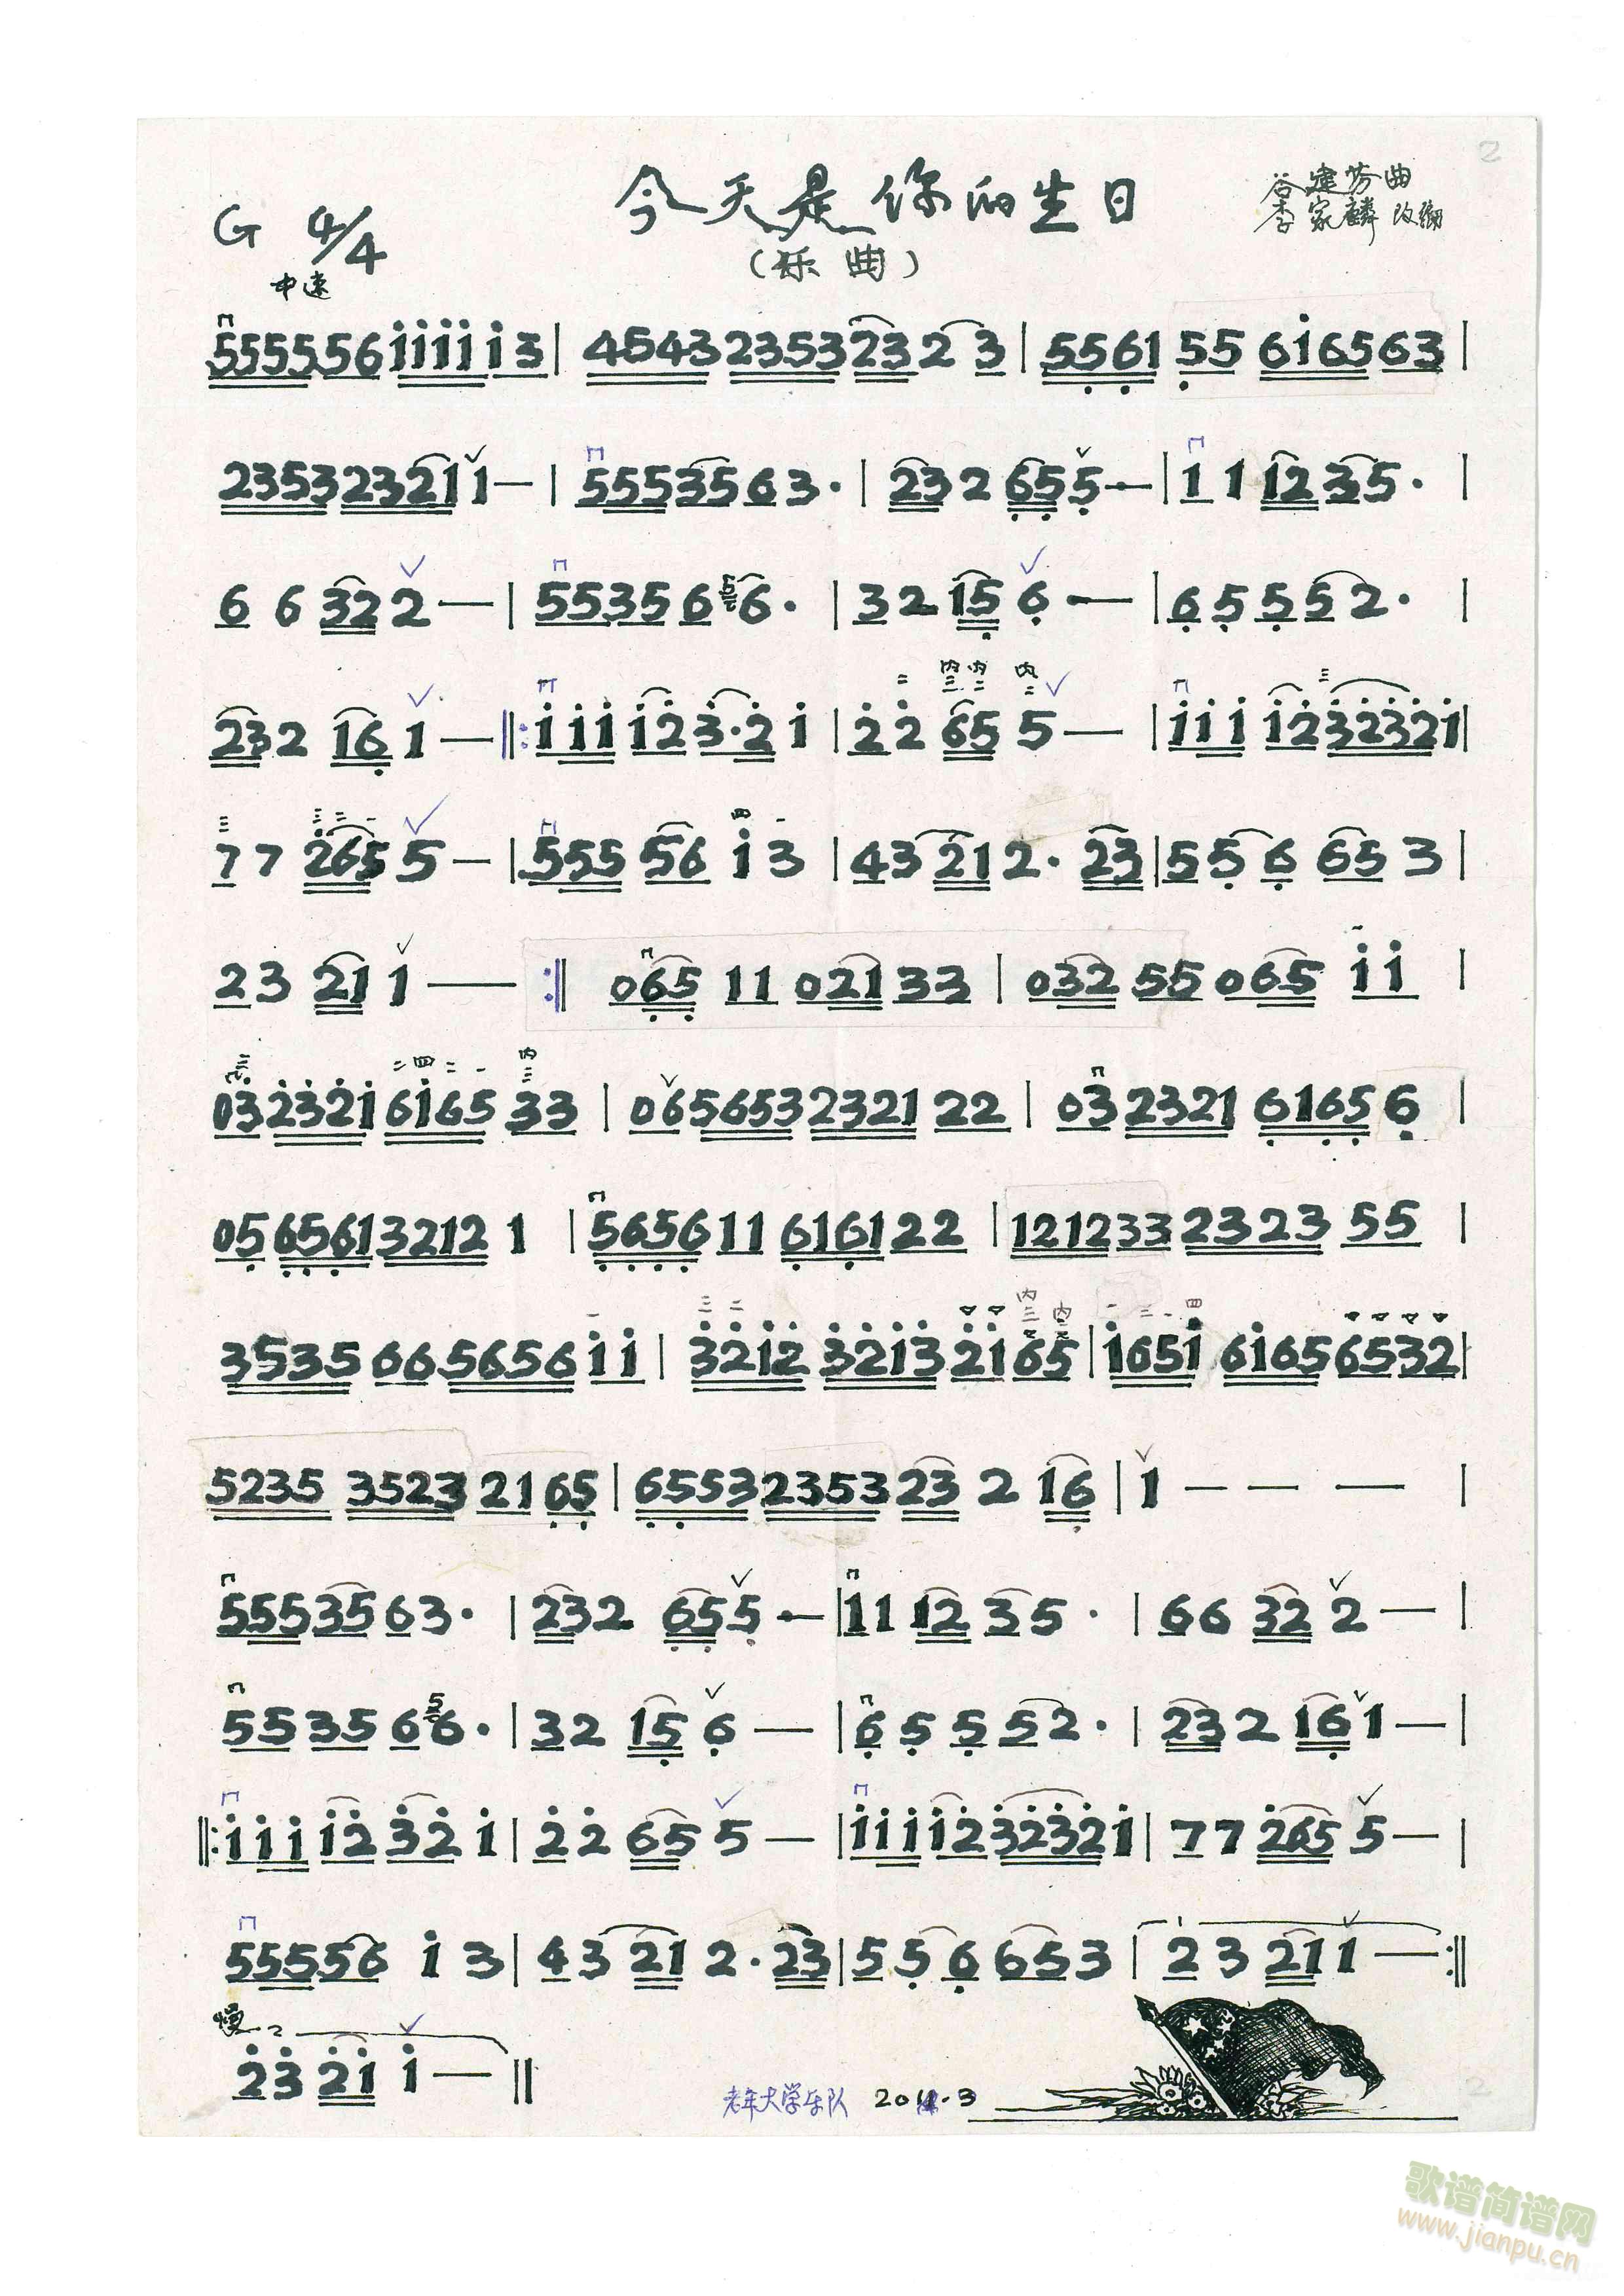 2
今天是你的生日
谷建芬曲
李家麟改编
G 4/4
(乐曲)
中速
555556i i i i i 3 | 4543 2353 23 2 3 | 5561 55 6i6563 |
2353 2321 1 — | 55535 6 3· | 23 2 65 5 — | 1 1 12 35· |
6 6 32 2 — | 5535 6 5 6· | 3 2 15 6 — | 6 5 5 5 2· |
23 2 16 1 — ‖: i i i i 2 3·2 i | 2 2 65 5 — | i i i i 2 3232 i |
7 7 265 5 — | 555 56 i 3 | 4 3 21 2· 23 | 5 5 6 65 3 |
2 3 21 1 — :‖ 065 11 021 33 | 032 55 065 i i |
03 232i 6i65 33 | 06 5653 2321 22 | 03 2321 6165 6 |
05 6561 3212 1 | 5656 11 6161 22 | 1212 33 2323 55 |
3535 66 5656 i i | 32i2 32i3 2i 65 | i65i 6i65 65 32 |
5235 3523 21 65 | 6553 2353 23 2 16 | 1 — — — |
555 35 6 3· | 23 2 65 5 — | 1 1 12 3 5· | 6 6 32 2 — |
55 35 6 5 6· | 3 2 15 6 — | 6 5 5 5 2· | 23 2 16 1 — |
‖: i i i i2 32 i | 2 2 65 5 — | i i i i2 3232 i | 7 7 265 5 — |
555 56 i 3 | 4 3 21 2· 23 | 5 5 6 65 3 | 2 3 21 1 — :‖
慢 2
2 3 2i i — ‖
老年大学乐队 2011.3
2
歌谱简谱网
www.jianpu.cn